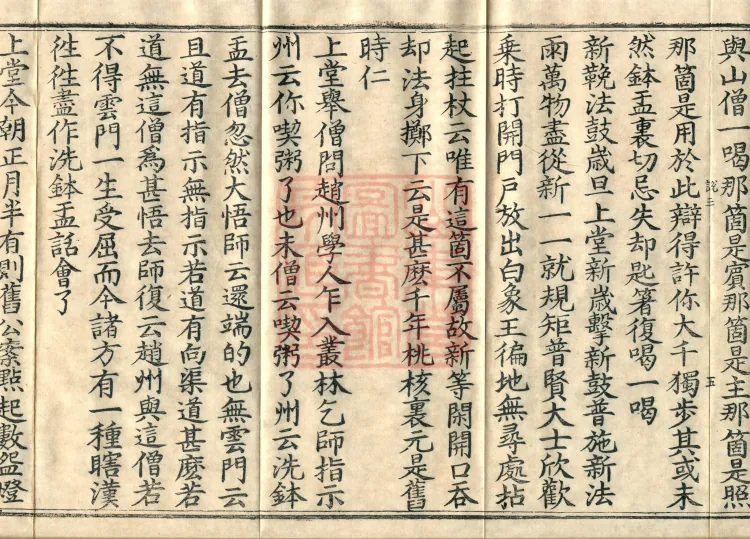 與山僧一喝那箇是賓那箇是主那箇是照
說三
五
那箇是用於此辯得許你大千獨步其或未
然鉢盂裏切忌失却匙筯復喝一喝
新鞔法鼓歲旦上堂新歲擊新鼓普施新法
雨萬物盡從新一一就規矩普賢大士欣歡
乘時打開門戶放出白象王徧地無尋處拈
起拄杖云唯有這箇不屬故新等閑開口吞
却法身擲下云是甚麽千年桃核裏元是舊
時仁
上堂舉僧問趙州學人乍入叢林乞師指示
州云你喫粥了也未僧云喫粥了州云洗鉢
盂去僧忽然大悟師云還端的也無雲門云
且道有指示無指示若道有向渠道甚麽若
道無這僧爲甚悟去師復云趙州與這僧若
不得雲門一生受屈而今諸方有一種瞎漢
徃徃盡作洗鉢盂話會了
上堂今朝正月半有則舊公案點起數盌燈